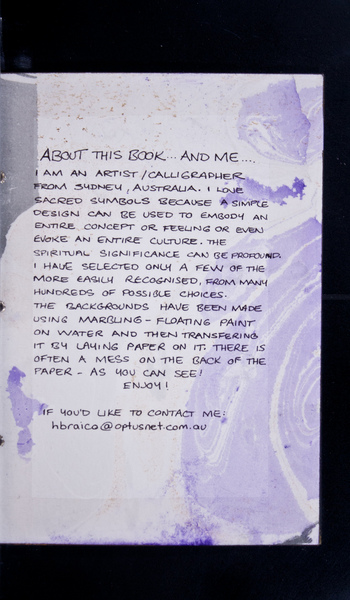 ABOUT THIS BOOK... AND ME....
I AM AN ARTIST/CALLIGRAPHER
FROM SYDNEY, AUSTRALIA. I LOVE
SACRED SYMBOLS BECAUSE A SIMPLE
DESIGN CAN BE USED TO EMBODY AN
ENTIRE CONCEPT OR FEELING OR EVEN
EVOKE AN ENTIRE CULTURE. THE
SPIRITUAL SIGNIFICANCE CAN BE PROFOUND.
I HAVE SELECTED ONLY A FEW OF THE
MORE EASILY RECOGNISED, FROM MANY
HUNDREDS OF POSSIBLE CHOICES.
THE BACKGROUNDS HAVE BEEN MADE
USING MARBLING - FLOATING PAINT
ON WATER AND THEN TRANSFERING
IT BY LAYING PAPER ON IT. THERE IS
OFTEN A MESS ON THE BACK OF THE
PAPER - AS YOU CAN SEE!
ENJOY!
IF YOU'D LIKE TO CONTACT ME:
hbraico@optusnet.com.au